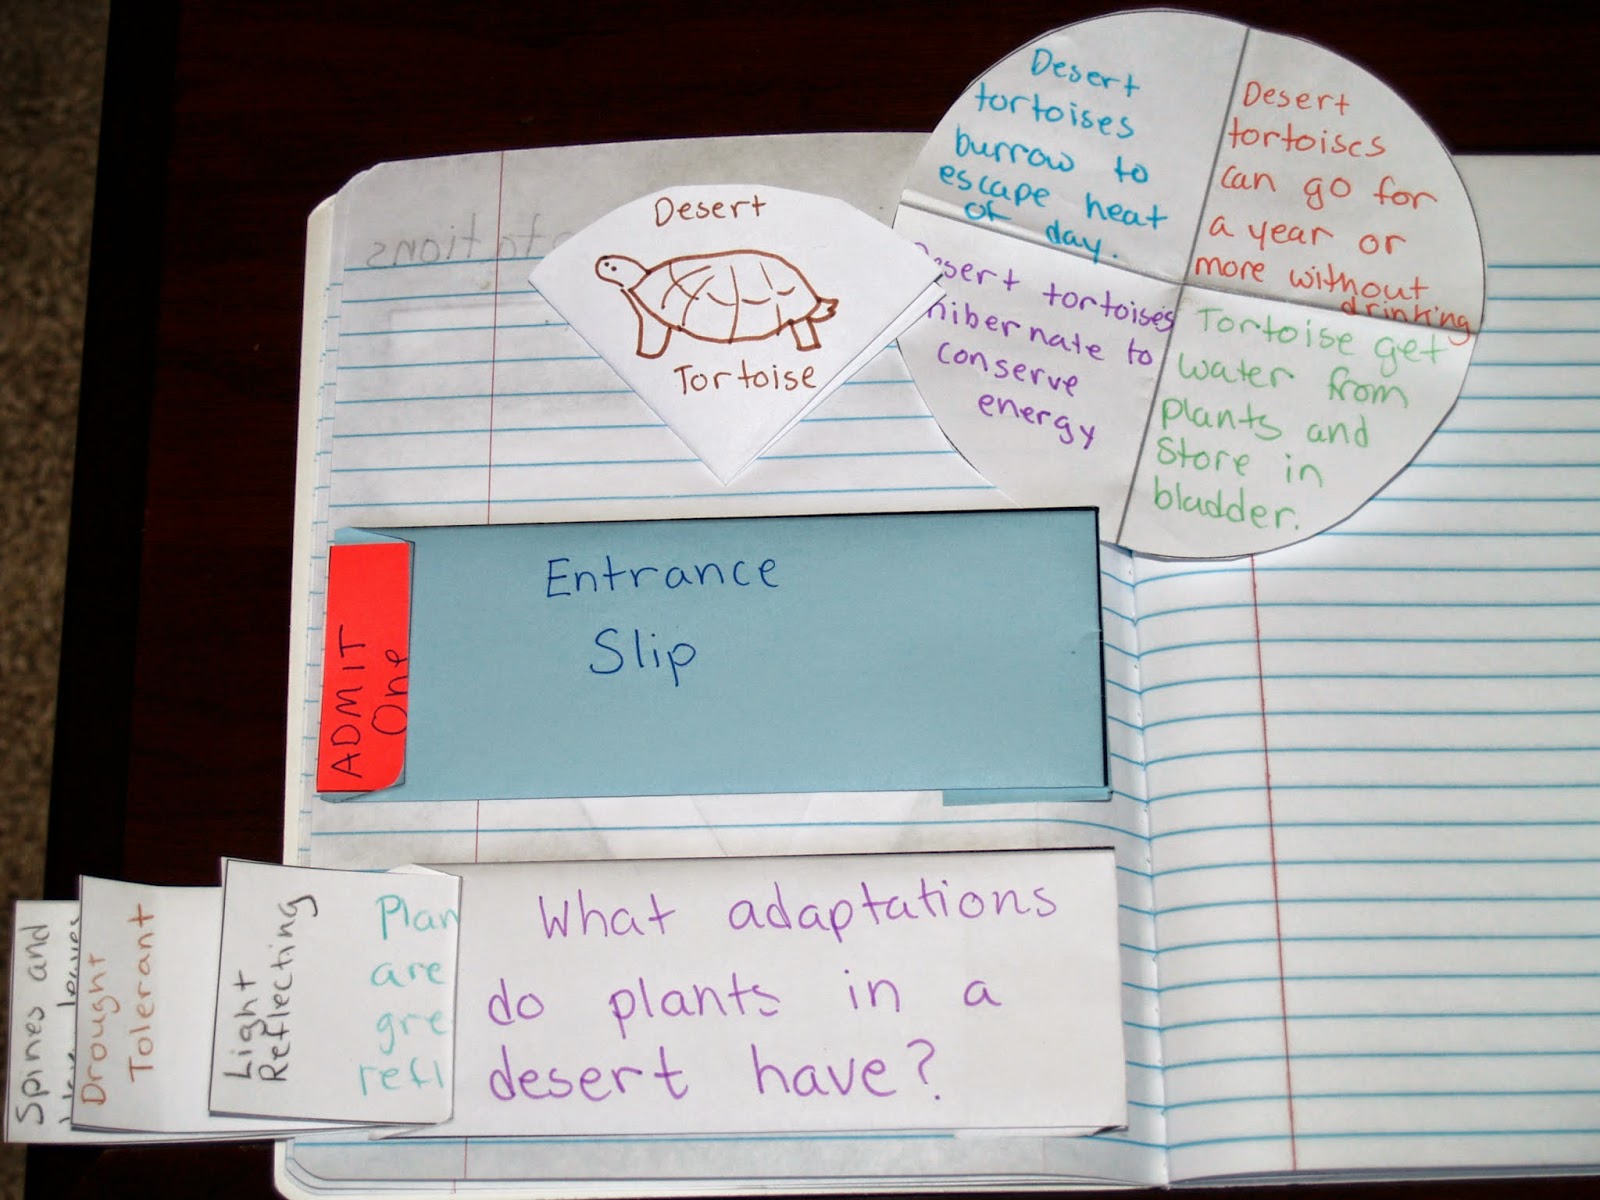 Desert
Tortoise
Desert
tortoises
burrow to
escape heat
of day.
Desert
tortoises
can go for
a year or
more without
drinking
tortoises
hibernate to
conserve
energy
Tortoise get
water from
plants and
store in
bladder.
Entrance
Slip
ADMIT
One
What adaptations
do plants in a
desert have?
Light
Reflecting
are
Drought
Tolerant
Spines and